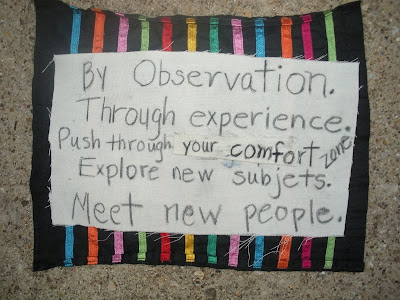 By Observation.
Through experience.
Push through your comfort zone.
Explore new subjets.
Meet new people.